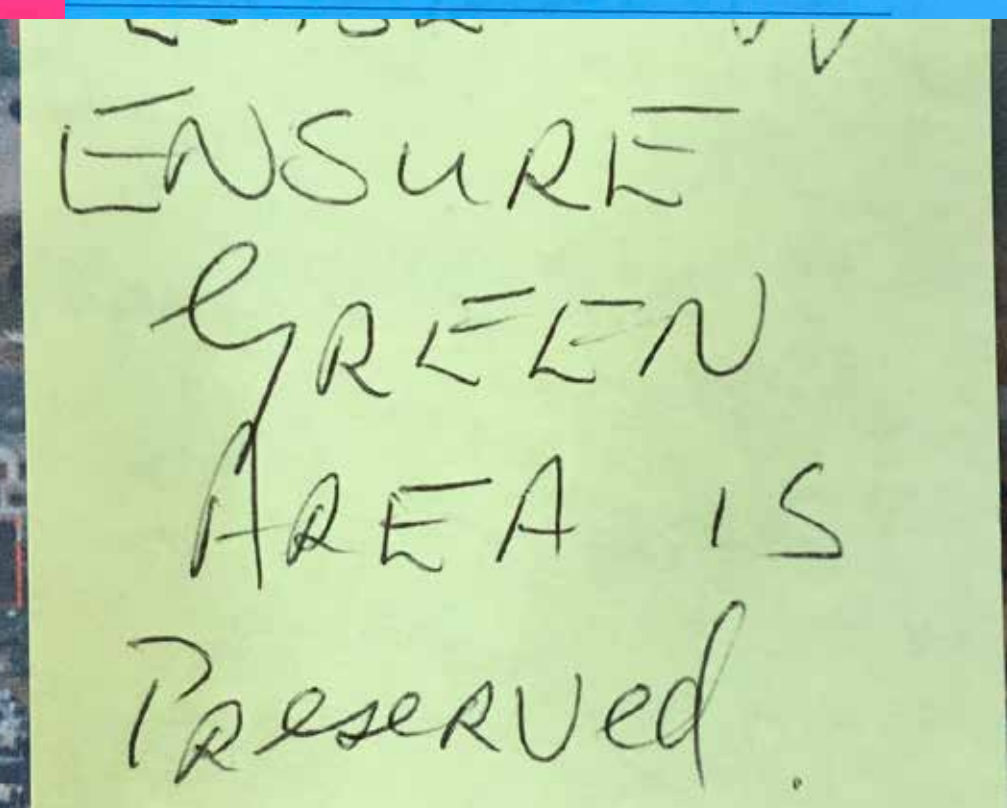 ENSURE
GREEN
AREA IS
Preserved.